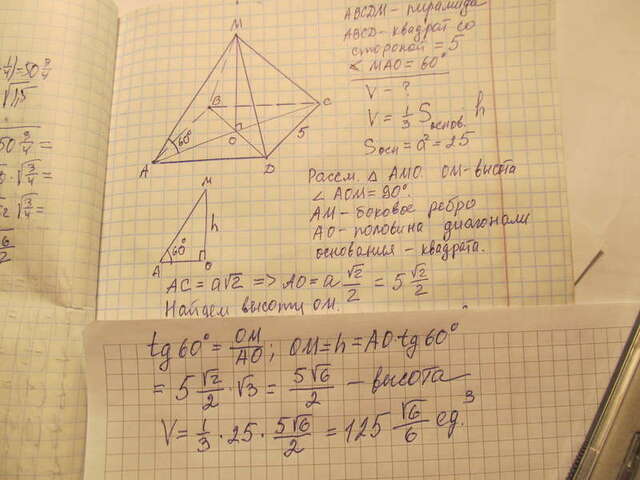 ABCDM - пирамида
ABCD - квадрат со
стороной = 5
∠ MAO = 60°
V = ?
V = 1/3 Sоснов. h
Sосн = a² = 25
M
B
C
60°
O
5
A
D
Рассм. △ AMO. OM - высота
∠ AOM = 90°.
AM - боковое ребро
AO - половина диагонали
основания - квадрата.
M
h
60°
A
O
AC = a√2 => AO = a √2/2 = 5 √2/2
Найдем высоту OM.
tg 60° = OM/AO; OM = h = AO·tg 60°
= 5 √2/2 · √3 = 5√6/2 - высота
V = 1/3 · 25 · 5√6/2 = 125 √6/6 ед.³